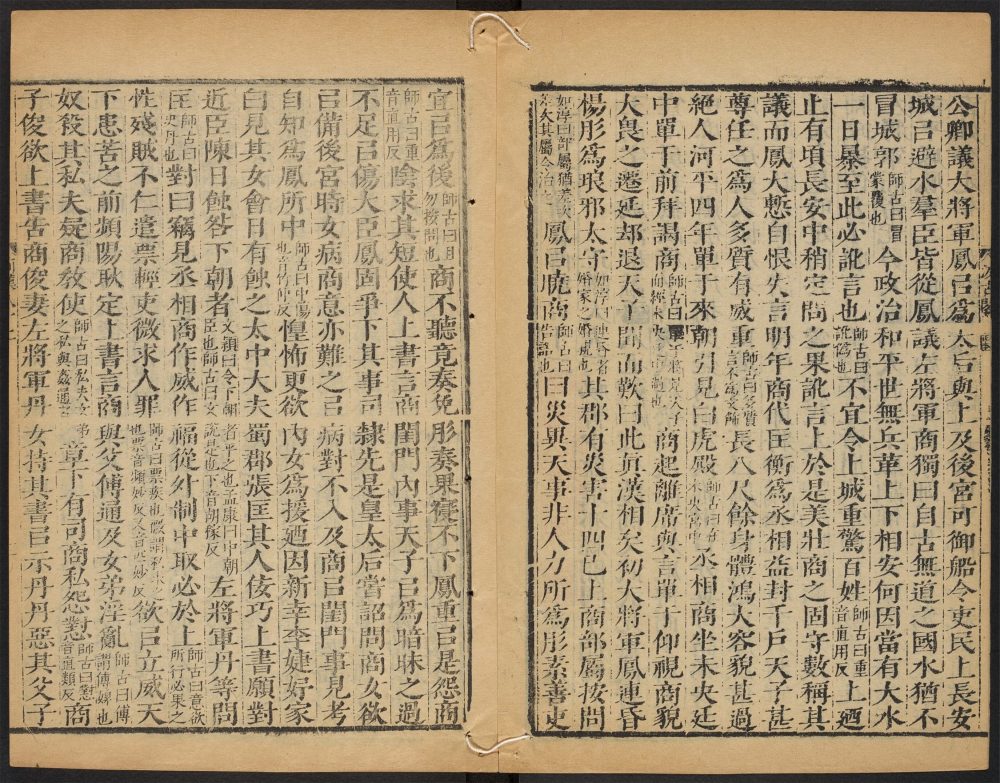 公卿議大將軍鳳㠯爲太后與上及後宮可御船令吏民上長安
城㠯避水羣臣皆從鳳議左將軍商獨曰自古無道之國水猶不
冒城郭師古曰冒蒙覆也今政治和平世無兵革上下相安何因當有大水
一日暴至此必訛言也師古曰訛僞也不宜令上城重驚百姓師古曰重音直用反上廼
止有頃長安中稍定問之果訛言上於是美壯商之固守數稱其
議而鳳大慙自恨失言明年商代匡衡爲丞相益封千戶天子甚
尊任之爲人多質有威重師古曰多質言不爲文飾長八尺餘身體鴻大容貌甚過
絕人河平四年單于來朝引見白虎殿師古曰在未央宮中丞相商坐未央廷
中單于前拜謁商師古曰商起離席與言單于仰視商貌
大畏之遷延却退天子聞而歎曰此真漢相矣初大將軍鳳連昏
楊肜爲琅邪太守其郡有災害十四已上商部屬按問
如淳曰部屬猶差次其屬令治之鳳㠯曉商師古曰告語也曰災異天事非人力所爲肜素善吏
宜㠯爲後師古曰且勿按問也商不聽竟奏免肜奏果寑不下鳳重㠯是怨商
師古曰重音直用反陰求其短使人上書言商閨門內事天子㠯爲暗昧之過
不足㠯傷大臣鳳固爭下其事司隸先是皇太后嘗詔問商女欲
㠯備後宮時女病商意亦難之㠯病對不入及商㠯閨門事見考
自知爲鳳所中師古曰中傷也音竹仲反惶怖更欲內女爲援廼因新幸李婕妤家
白見其女會日有蝕之太中大夫蜀郡張匡其人佞巧上書願對
近臣陳日蝕咎下朝者文穎曰令下朝者平之也孟康曰中朝臣也師古曰文說是也下音胡稼反左將軍丹等問
匡師古曰史丹也對曰竊見丞相商作威作福從外制中取必於上師古曰意欲所行必果之
性殘賊不仁遣票輕吏微求人罪師古曰票疾也欲㠯立威天
下患苦之前頻陽耿定上書言商與父傅通及女弟淫亂師古曰傅謂傅婢也
奴殺其私夫疑商敎使師古曰私夫女弟之私與姦通者章下有司商私怨懟師古曰懟音直類反商
子俊欲上書告商俊妻左將軍丹女持其書㠯示丹丹惡其父子